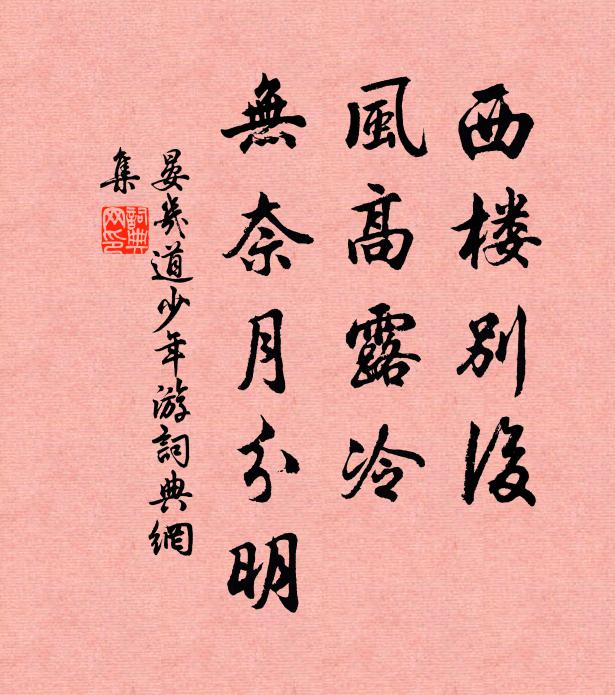 西楼别後
風高露冷
無奈月分明
晏幾道少年游詞典網
集
詞典
网印